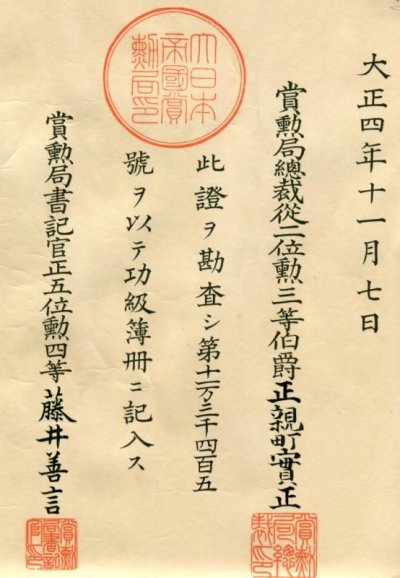 大正四年十一月七日
賞勲局總裁從二位勲三等伯爵正親町實正
此證ヲ勘査シ第十一万三千四百五
號ヲ以テ功級簿冊ニ記入ス
賞勲局書記官正五位勲四等藤井善言
大日本
帝國賞
勲局印